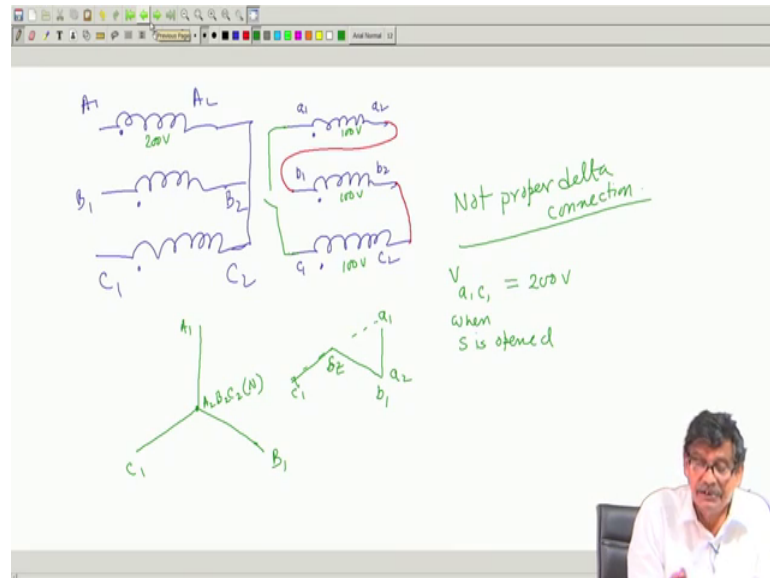 Previous Page
Arial Normal 12
A1 A2
200V
B1 B2
C1 C2
a1 a2
100V
b1 b2
100V
c1 C2
100V
Not proper delta
connection.
V a1c1 = 200V
when
S is opened
A1
A2B2C2(N)
C1
B1
a1
a2
b1
c1